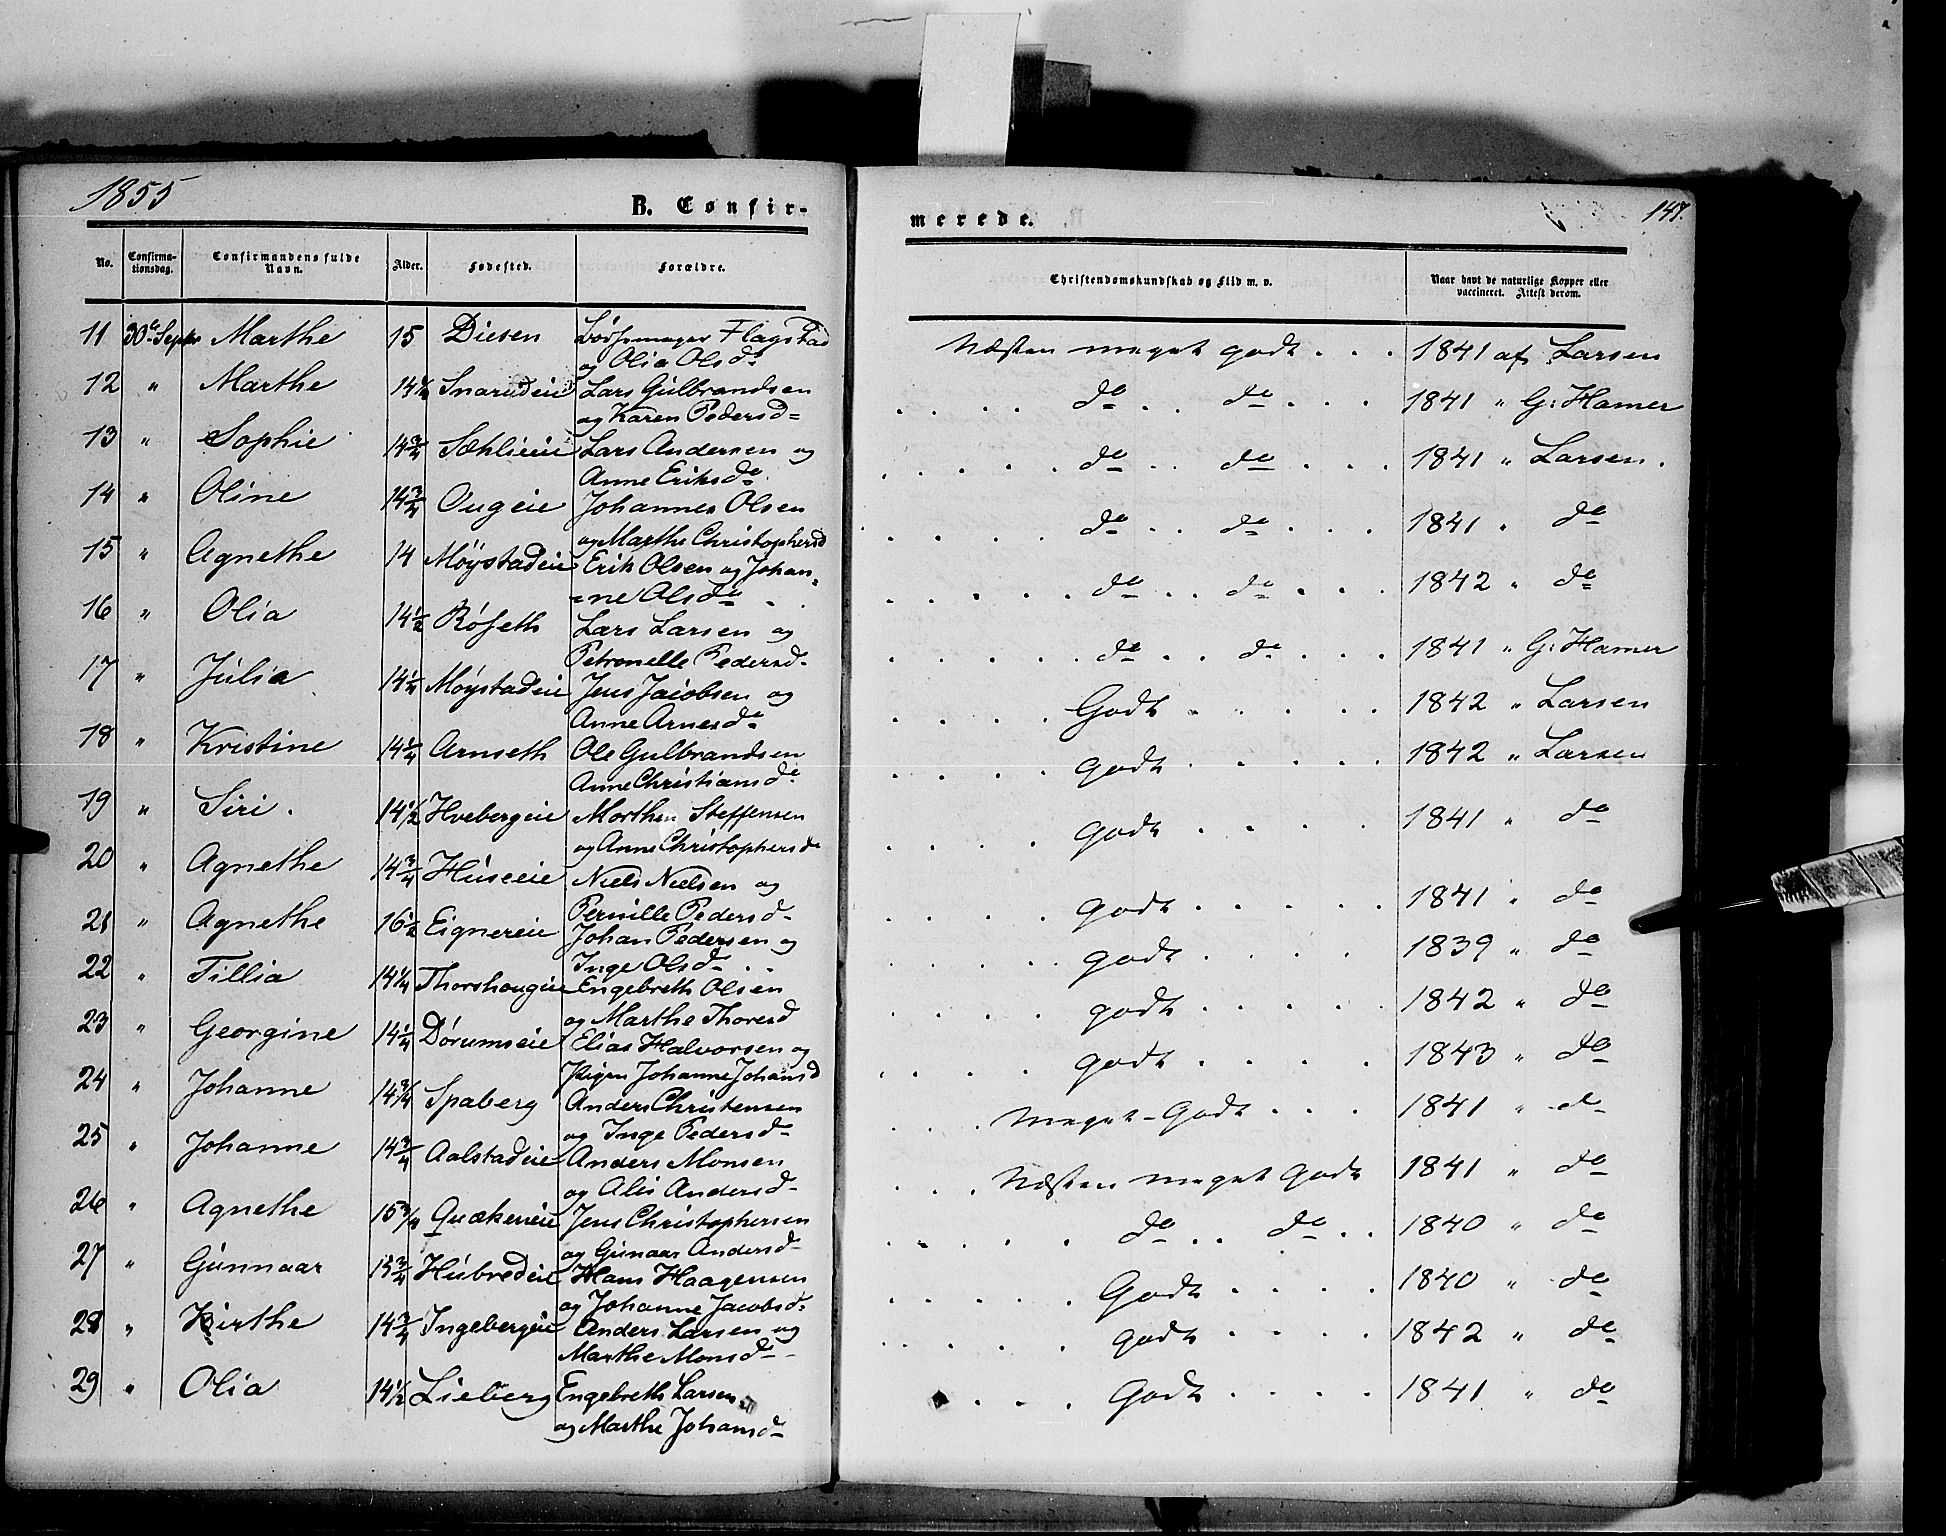 1855
B. Confir-
merede.
147.
No. Confirma-tionsdag. Confirmandens fulde Navn. Alder. Fødested. Forældre. Christendomskundskab og Flid m. v. Naar havt de naturlige Kopper eller vaccineret. Attest derom.
11 30te Septbr Marthe 15 Diesen Flagstad Næsten meget godt . . . 1841 af Larsen
og Olia Olsd.
12 " Marthe 14½ Snarudeie Lars Gulbrandsen do do 1841 " G: Hamer
og Karen Pedersd.
13 " Sophie 14¾ Sæhlieeie Lars Andersen og do do 1841 " Larsen.
Anne Eriksd.
14 " Oline 14¾ Ougeie Johannes Olsen do do 1841 " do
og Marthe Christophersd
15 " Agnethe 14 Møystadeie Erik Olsen og Johan- do do 1842 " do
ne Olsd.
16 " Olia 14½ Røfseth Lars Larsen og do do 1841 " G: Hamer
Petronelle Pedersd.
17 " Julia 14¼ Møystadeie Jens Jacobsen og Godt 1842 " Larsen
Anne Arnesd.
18 " Kristine 14¼ Arnseth Ole Gulbrandsen godt 1842 " Larsen
Anne Christiansd.
19 " Siri. 14½ Hvebergeie Morthen Steffensen godt 1841 " do
og Anne Christophersd.
20 " Agnethe 14¾ Huseeie Niels Nielsen og godt 1841 " do
Pernille Pedersd.
21 " Agnethe 16½ Eignereie Johan Pedersen og godt 1839 " do
Inge Olsd.
22 " Tillia 14¼ Thorshougeie Engebreth Olsen godt 1842 " do
og Marthe Thoresd
23 " Georgine 14¼ Dørumseie Elias Halvorsen og godt 1843 " do
Pigen Johanne Johansd
24 " Johanne 14¾ Spaberg Anders Christensen Meget-Godt 1841 " do
og Inge Pedersd.
25 " Johanne 14¾ Aalstadeie Anders Monsen Næsten meget Godt 1841 " do
og Alis Andersd.
26 " Agnethe 15¾ Quækerneie Jens Christophersen do do 1840 " do
og Gunaar Andersd.
27 " Gunnaar 15¾ Hubredeie Hans Haagensen Godt 1840 " do
og Johanne Jacobsd.
28 " Birthe 14¾ Ingebergeie Anders Larsen og godt 1842 " do
Marthe Monsd.
29 " Olia 14½ Lieberg Engebreth Larsen Godt 1841 " do
og Marthe Johansd.